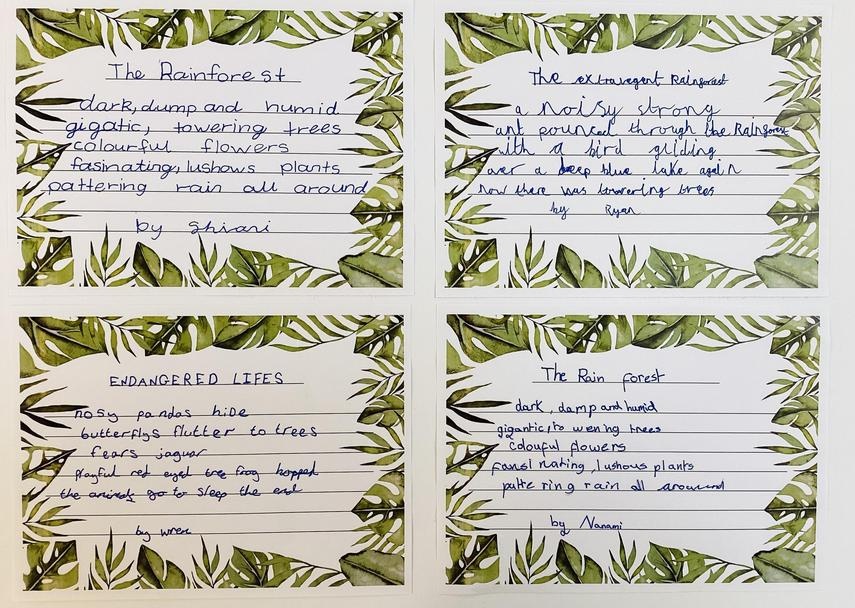 The Rainforest
dark, dump and humid
gigatic, towering trees
colourful flowers
fasinating, lushows plants
pattering rain all around
by Shiani
The extravegent Rainforest
a noisy strong
ant pounced through the Rainforest
with a bird gliding
over a deep blue lake again
now there was towering trees
by Ryan
ENDANGERED LIFES
nosy pandas hide
butterflys flutter to trees
fears jaguar
Playful red eyed tree frog hopped
the animals go to sleep the end
by wren
The Rain forest
dark, damp and humid
gigantic, to wering trees
colouful flowers
fansi nating, lushous plants
patte ring rain all around
by Nanami